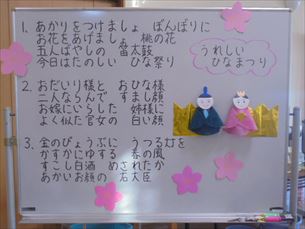 1. あかりをつけましょ ぼんぼりに
お花をあげましょ 桃の花
五人ばやしの 笛太鼓
今日はたのしい ひな祭り
2. おだいり様と おひな様
二人ならんで すまし顔
お嫁にいらした 姉様に
よく似た官女の 白い顔
3. 金のびょうぶに うつる灯を
かすかにゆする 春の風
すこし白酒 めされたか
あかいお顔の 右大臣
うれしい
ひなまつり